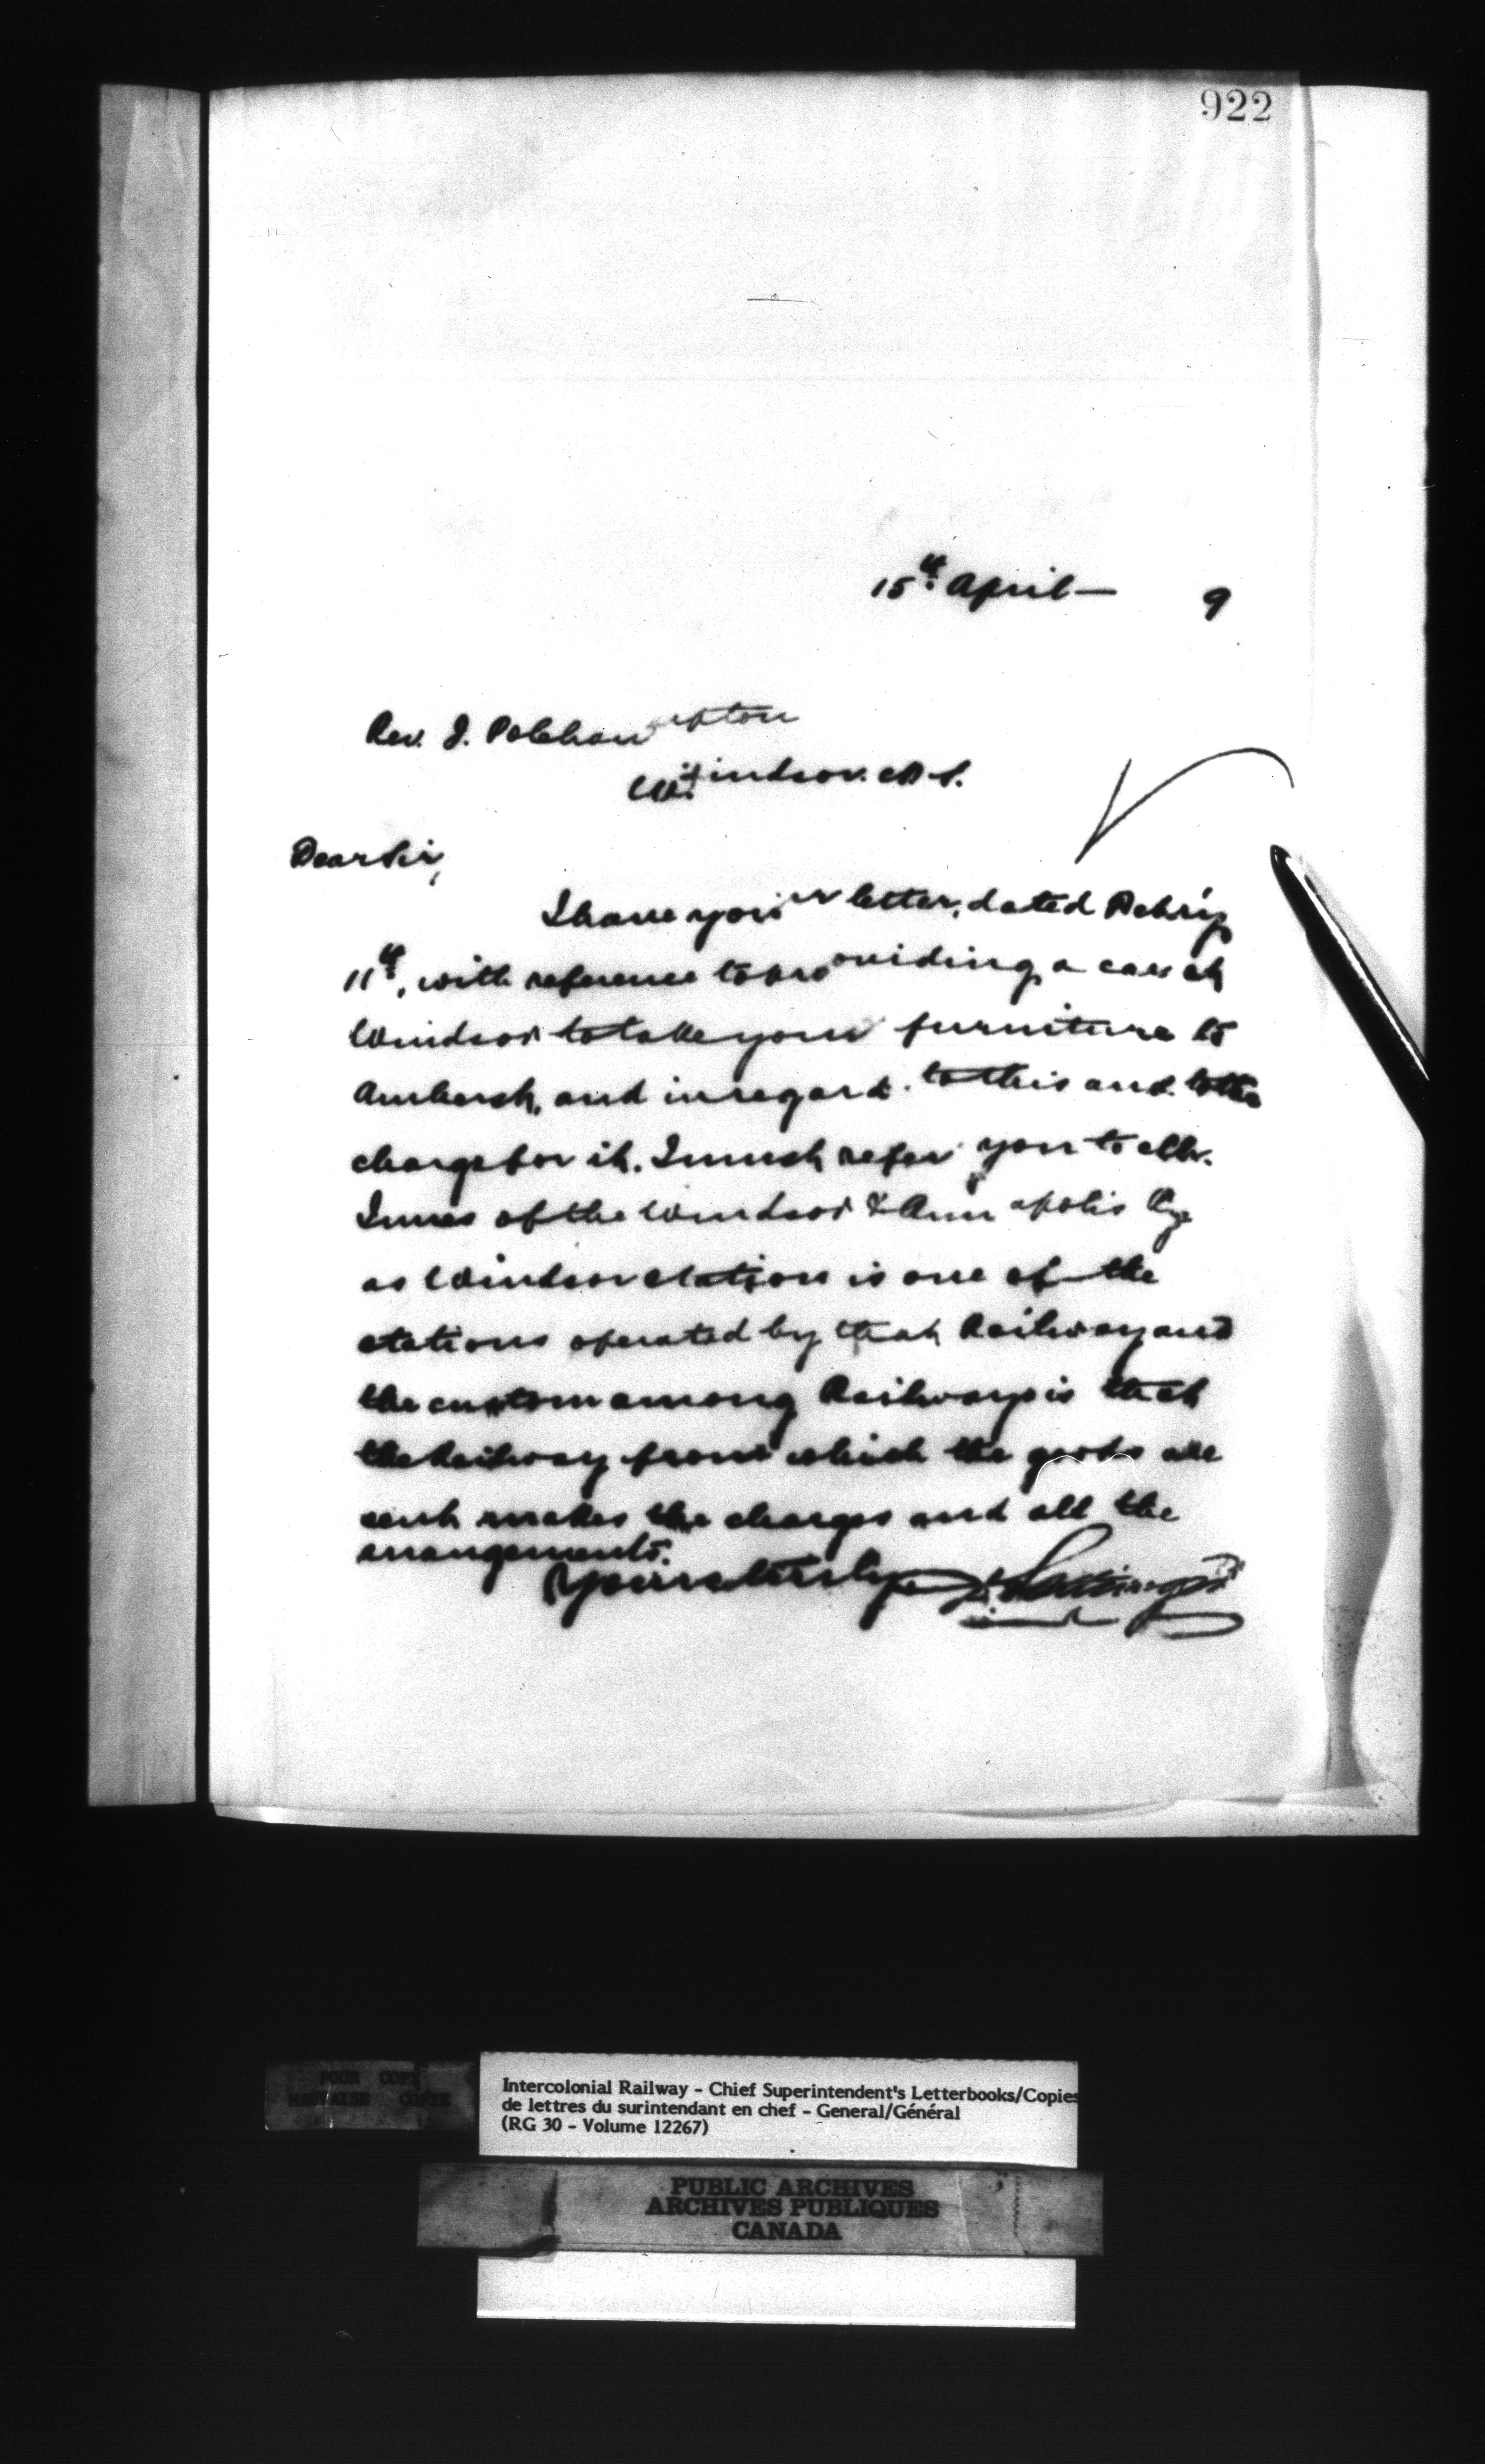 922
15th April — 9
Rev. J. Polehampton
Windsor. N.S.
Dear Sir,
I have your letter, dated
11th, with reference to providing a car at
Windsor to take your furniture to
Amherst, and in regard to this and to the
charge for it. I must refer you to Mr.
Innes of the Windsor & Annapolis Ry
as Windsor station is one of the
stations operated by that Railway and
the custom among Railways is that
the Railway from which the goods are
sent makes the charges and all the
arrangements.
Yours truly
POOR COPY
MAUVAISE COPIE
Intercolonial Railway - Chief Superintendent's Letterbooks/Copies
de lettres du surintendant en chef - General/Général
(RG 30 - Volume 12267)
PUBLIC ARCHIVES
ARCHIVES PUBLIQUES
CANADA